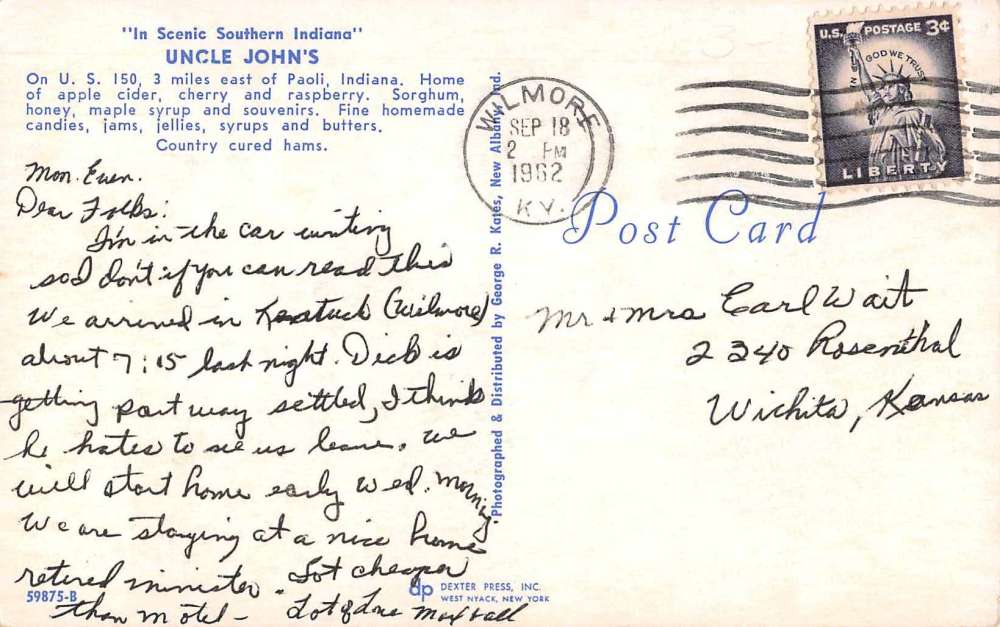 "In Scenic Southern Indiana"
UNCLE JOHN'S
On U. S. 150, 3 miles east of Paoli, Indiana. Home
of apple cider, cherry and raspberry. Sorghum,
honey, maple syrup and souvenirs. Fine homemade
candies, jams, jellies, syrups and butters.
Country cured hams.
Mon. Even.
Dear Folks:
I'm in the car writing
so I don't if you can read this
We arrived in Kentuck (Wilmore)
about 7:15 last night. Dick is
getting part way settled, I think
he hates to see us leave. We
will start home early Wed. morning.
We are staying at a nice home
retired minister. Lot cheaper
than motel - Lot of Love
59875-B
Photographed & Distributed by George R. Kates, New Albany, Ind.
dp DEXTER PRESS, INC.
WEST NYACK, NEW YORK
WILMORE
SEP 18
2 PM
1962
KY.
U.S. POSTAGE 3¢
IN GOD WE TRUST
LIBERTY
Post Card
Mr & Mrs Earl Wait
2340 Rosenthal
Wichita, Kansas